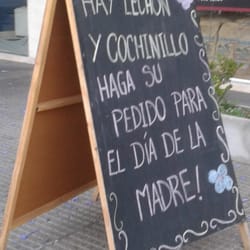 HAY LECHON
Y COCHINILLO
HAGA SU
PEDIDO PARA
EL DÍA DE LA
MADRE!